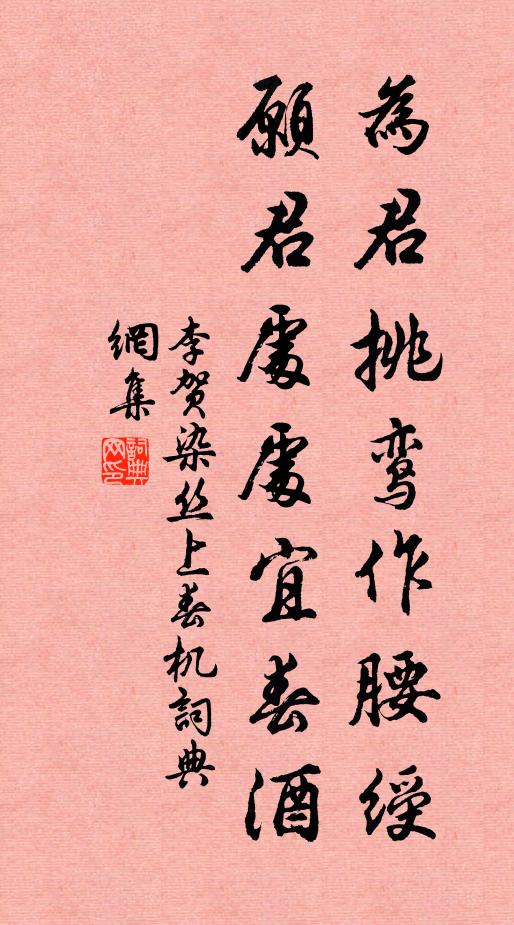 為君挑鸾作腰綬
願君處處宜春酒
李贺染丝上春机詞典
網集
詞典網印